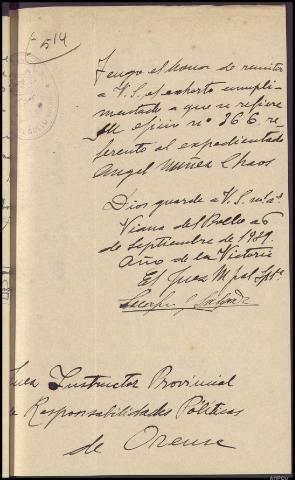 514
Tengo el honor de remitir
a V.S. el exhorto cumpli-
mentado a que se refiere
su oficio nº 366 re-
ferente al expedientado
Angel Núñez Chaos
Dios guarde a V.S. m.s a.s
Viana del Bollo a 6
de Septiembre de 1939.
Año de la Victoria
El Juez Mpal
Juez Instructor Provincial
Responsabilidades Políticas
de Orense